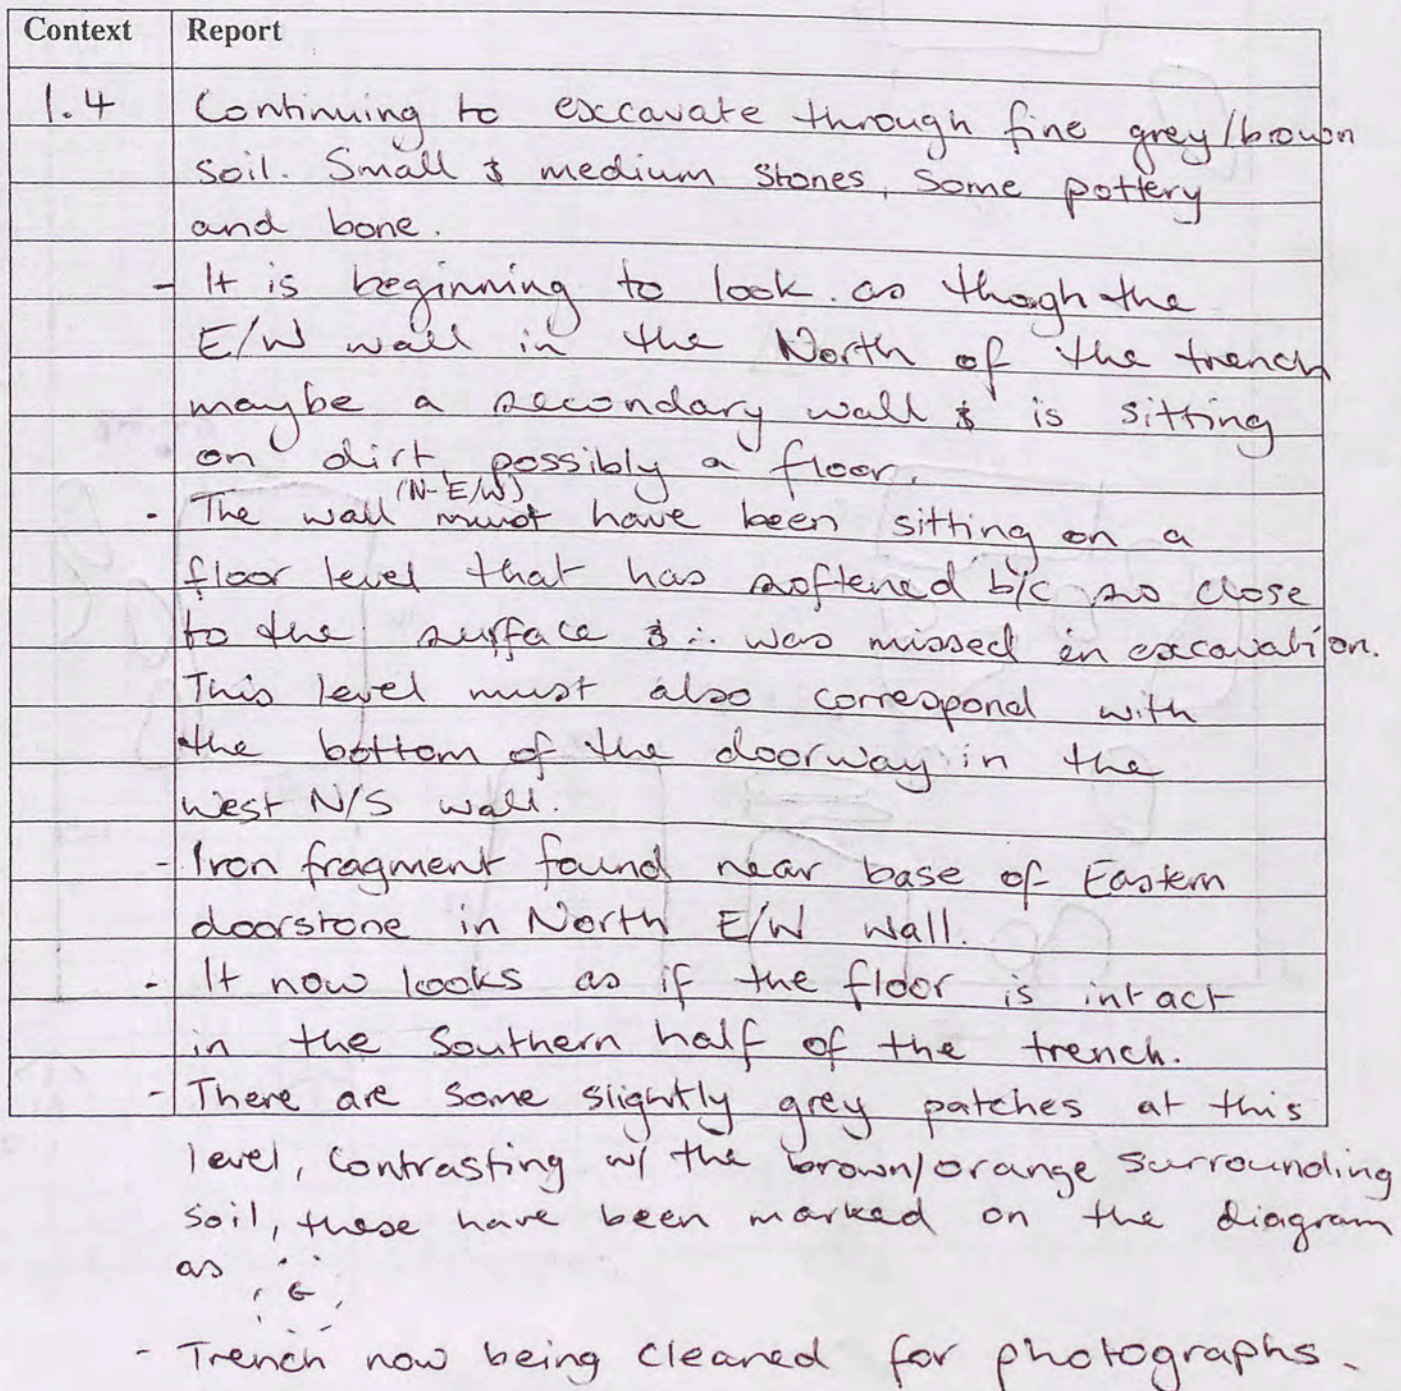 Context Report
1.4 Continuing to excavate through fine grey/brown
soil. Small & medium stones, some pottery
and bone.
- It is beginning to look as thogh the
E/W wall in the North of the trench
maybe a secondary wall & is sitting
on dirt, possibly a floor.
(N-E/W)
- The wall must have been sitting on a
floor level that has softened b/c so close
to the surface & ∴ was missed in excavation.
This level must also correspond with
the bottom of the doorway in the
West N/S wall.
- Iron fragment found near base of Eastern
doorstone in North E/W wall.
- It now looks as if the floor is intact
in the Southern half of the trench.
- There are some slightly grey patches at this
level, contrasting w/ the brown/orange surrounding
soil, these have been marked on the diagram
as G
- Trench now being cleaned for photographs.